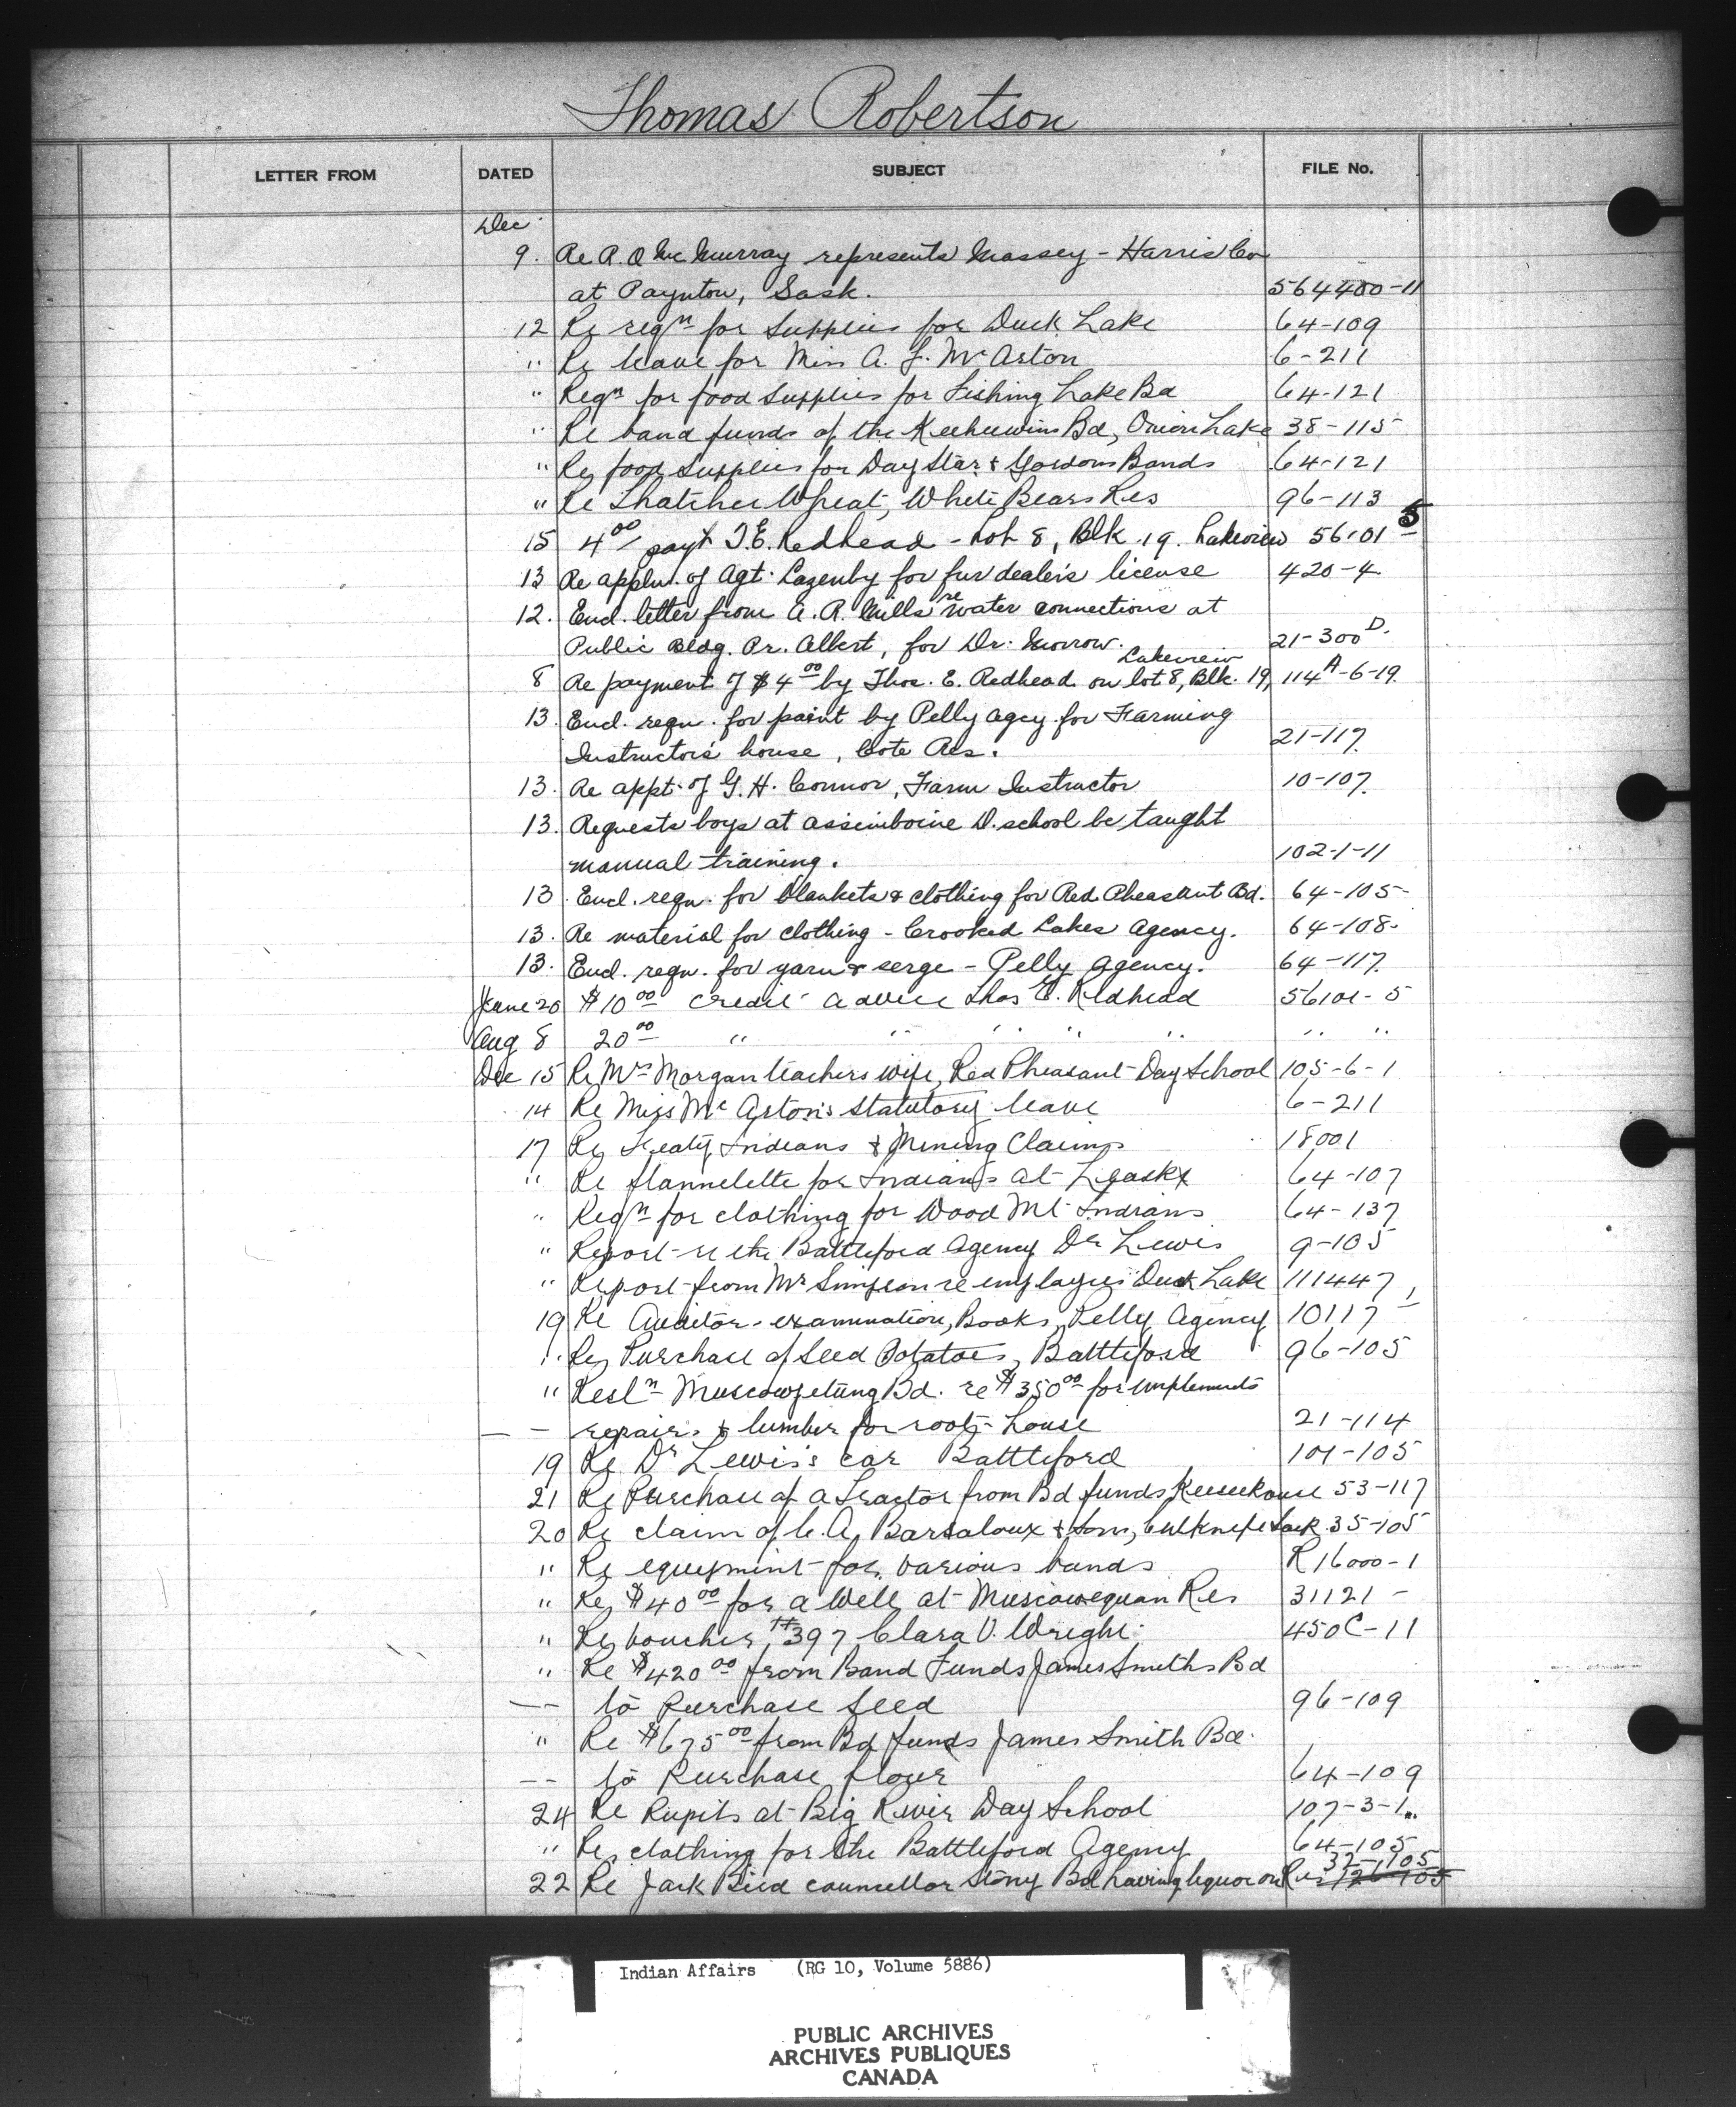 Thomas Robertson
LETTER FROM DATED SUBJECT FILE No.
Dec
9. Re A. O McMurray represents Massey - Harris Co
at Paynton, Sask. 564400-11
12 Re reqn for supplies for Duck Lake 64-109
" Re leave for Miss A. F. McAston 6-211
" Reqn for food supplies for Fishing Lake Bd 64-121
" Re band funds of the Keeheewins Bd, Onion Lake 38-115
" Re food supplies for Day Star & Gordons Bands 64-121
" Re Thatcher Wheat, White Bears Res 96-113
15 4 00/ payt T.E. Redhead - Lot 8, Blk 19. Lakeview 56101 5
13 Re appln. of Agt. Lazenby for fur dealer's license 420-4
12. Encl. letter from A. R. Mills re water connections at
Public Bldg. Pr. Albert, for Dr. Morrow. 21-300 D.
Lakeview
8 Re payment of $4 00 by Thos. E. Redhead on lot 8, Blk. 19, 114A-6-19.
13. Encl. reqn. for paint by Pelly Agcy for Farming
Instructor's house, Cote Res. 21-117.
13. Re appt. of G. H. Connor, Farm Instructor 10-107.
13. Requests boys at Assiniboine D. school be taught
manual training. 102-1-11
13. Encl. reqn. for blankets & clothing for Red Pheasant Bd. 64-105-
13. Re material for clothing - Crooked Lakes Agency. 64-108.
13. Encl. reqn. for yarn & serge - Pelly Agency. 64-117.
June 20 $10 00 credit advice Thos E. Redhead 56101-5
Aug 8 20 00 " " " " " " "
Dec 15 Re Mrs Morgan teachers wife, Red Pheasant Day School 105-6-1
14 Re Miss McAston's statutory leave 6-211
17 Re Treaty Indians & Mining Claims 18001
" Re flannelette for Indians at Leask 64-107
" Reqn for clothing for Wood Mt Indians 64-137
" Report re the Battleford Agency Dr Lewis 9-105
" Report from Mr Simpson re employees Duck Lake 111447
19 Re Auditor examination, Books, Pelly Agency 10117-1
" Re Purchase of Seed Potatoes, Battleford 96-105
" Resln Muscowpetung Bd. re $350 00 for implements
- - repairs & lumber for root-house 21-114
19 Re Dr Lewis's car Battleford 101-105
21 Re Purchase of a Tractor from Bd funds Keeseekouse 53-117
20 Re claim of C. A. Barsaloux & Sons, Cutknife Sask 35-105
" Re equipment for various bands R16000-1
" Re $40 00 for a well at Muscowequan Res 31121-
" Re voucher #397 Clara V. Wright. 450C-11
" Re $420 00 from Band Funds James Smiths Bd
-- to Purchase Seed 96-109
" Re $675 00 from Bd funds James Smith Bd.
-- to Purchase flour 64-109
24 Re Pupils at Big River Day School 107-3-1
" Re clothing for the Battleford Agency 64-105
32-1105
22 Re Jack Bird councellor Stony Bd having liquor on Res
Indian Affairs (RG 10, Volume 5886)
PUBLIC ARCHIVES
ARCHIVES PUBLIQUES
CANADA